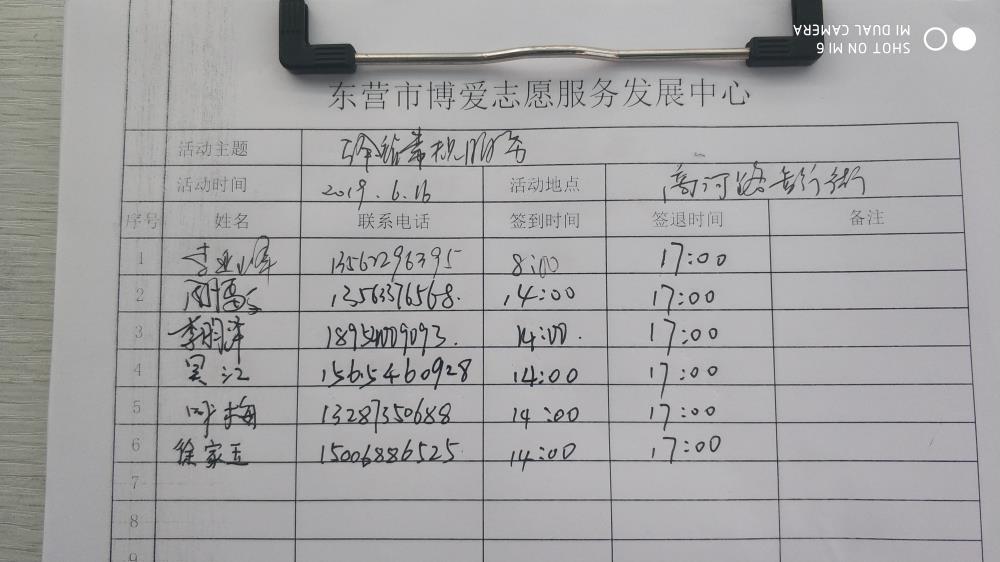 SHOT ON MI 6
MI DUAL CAMERA
东营市博爱志愿服务发展中心
活动主题 服务
活动时间 2019.6.16 活动地点
序号 姓名 联系电话 签到时间 签退时间 备注
1 李业军 13562296395 8:00 17:00
2 13563376568. 14:00 17:00
3 李明泽 18954009093. 14:00. 17:00
4 吴江 15615460928 14:00 17:00
5 叶梅 13287350688 14:00 17:00
6 徐家玉 15006886525 14:00 17:00
7
8
9